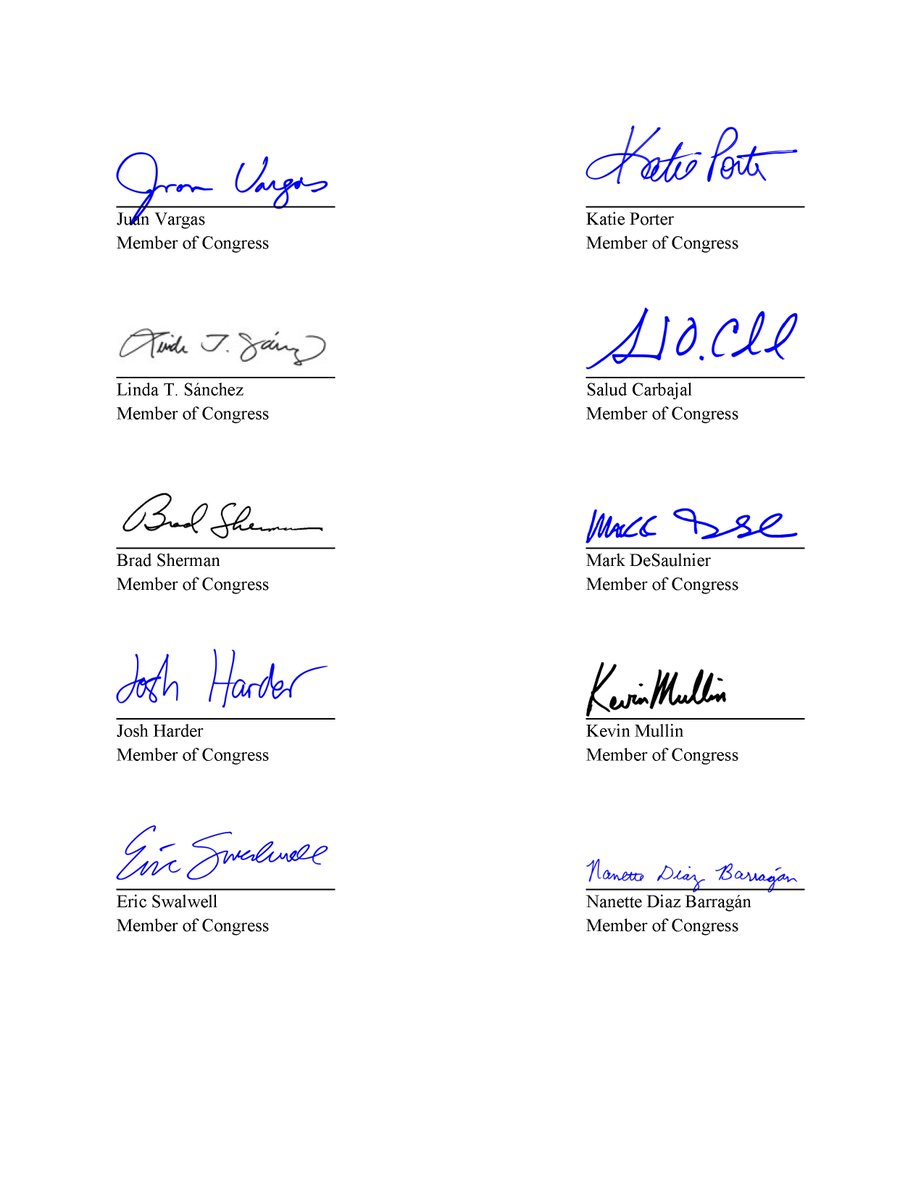 Juan Vargas
Katie Porter
Juan Vargas
Member of Congress
Katie Porter
Member of Congress
Linda T. Sánchez
Linda T. Sánchez
Member of Congress
Salud Carbajal
Member of Congress
Brad Sherman
Brad Sherman
Member of Congress
Mark DeSaulnier
Member of Congress
Josh Harder
Kevin Mullin
Josh Harder
Member of Congress
Kevin Mullin
Member of Congress
Eric Swalwell
Nanette Diaz Barragán
Eric Swalwell
Member of Congress
Nanette Diaz Barragán
Member of Congress